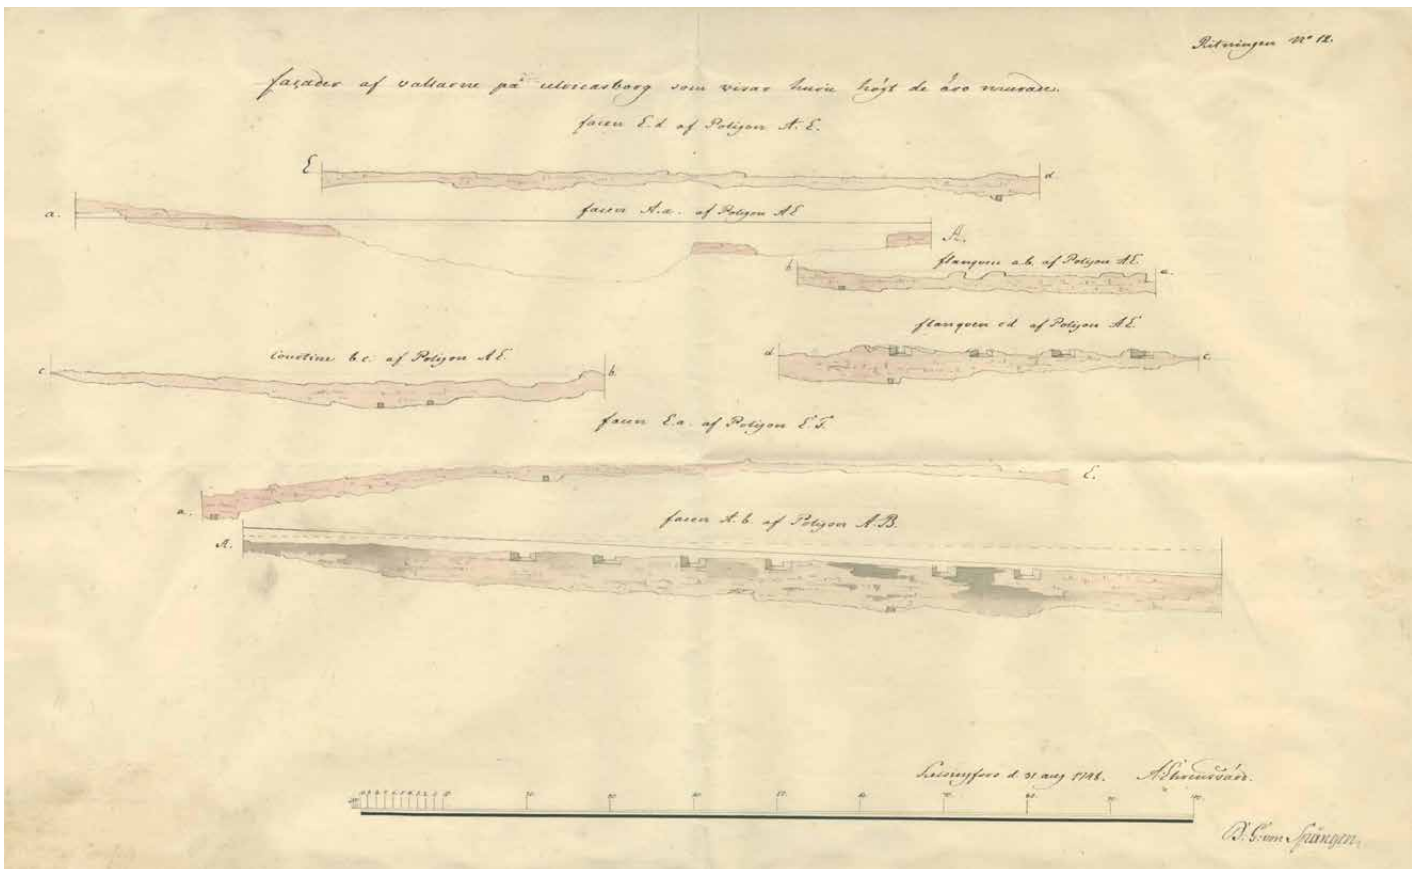 Ritningen No 12.
façader af vallarne på ulricasborg som visar huru högt de äro murade.
facen E.d af Poligon A.E.
E d.
a. facen A.a. af Poligon AE A.
flanquen a.b. af Poligon AE.
b a.
flanquen cd af Poligon AE.
Courtine b.c. af Poligon AE. d c.
c. b.
facen E.a. af Poligon E.F.
a. E.
facen A.b. af Poligon A.B.
A.
Helsingfors d. 31 aug 1748. A Ehrensvärd.